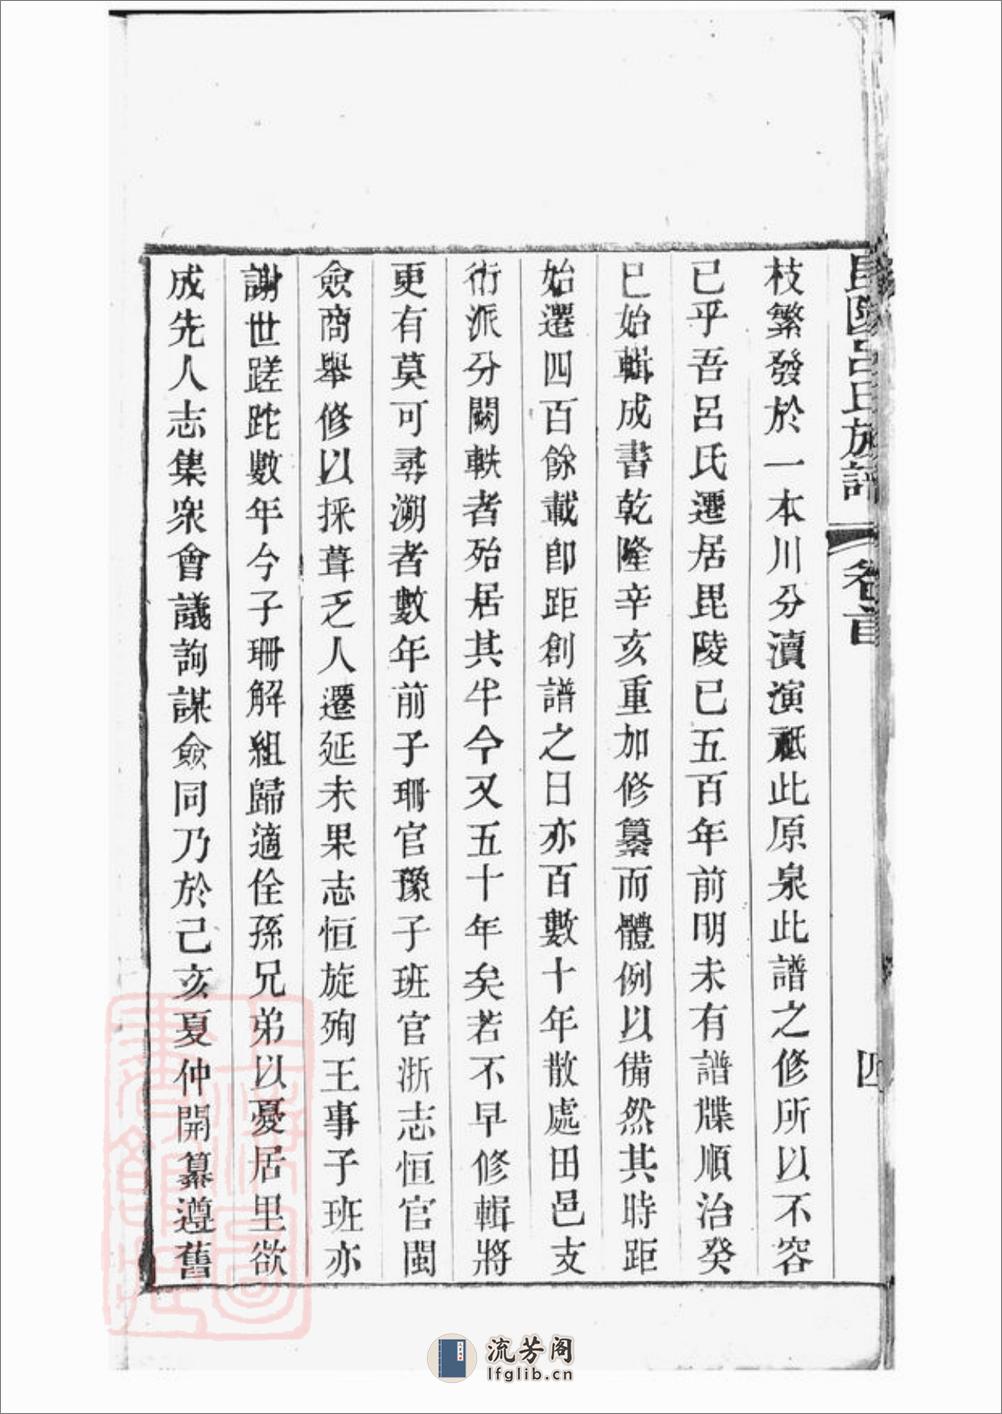 毘陵呂氏族譜 卷首 四
枝繁發於一本川分瀆演祗此原泉此譜之修所以不容
已乎吾呂氏遷居毘陵已五百年前明未有譜牒順治癸
巳始輯成書乾隆辛亥重加修纂而體例以備然其時距
始遷四百餘載卽距創譜之日亦百數十年散處田邑支
衍派分闕軼者殆居其半今又五十年矣若不早修輯將
更有莫可尋溯者數年前子珊官豫子班官浙志恒官閩
僉商舉修以採葺乏人遷延未果志恒旋殉王事子班亦
謝世蹉跎數年今子珊解組歸適佺孫兄弟以憂居里欲
成先人志集衆會議詢謀僉同乃於己亥夏仲開纂遵舊
流芳阁
lfglib.cn